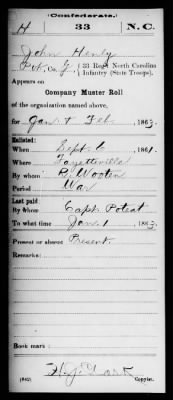 (Confederate.)
H 33 N.C.
John Henly
Pvt, Co. G, 33 Reg't North Carolina
Infantry (State Troops).
Appears on
Company Muster Roll
of the organization named above,
for Jan & Feb, 1863.
Enlisted:
When Sept. 6, 1861.
Where Fayetteville
By whom B. Wooten
Period War
Last paid:
By whom Capt. Poteat
To what time Jan 1, 1863.
Present or absent Present.
Remarks:
Book mark:
(642) Copyist.